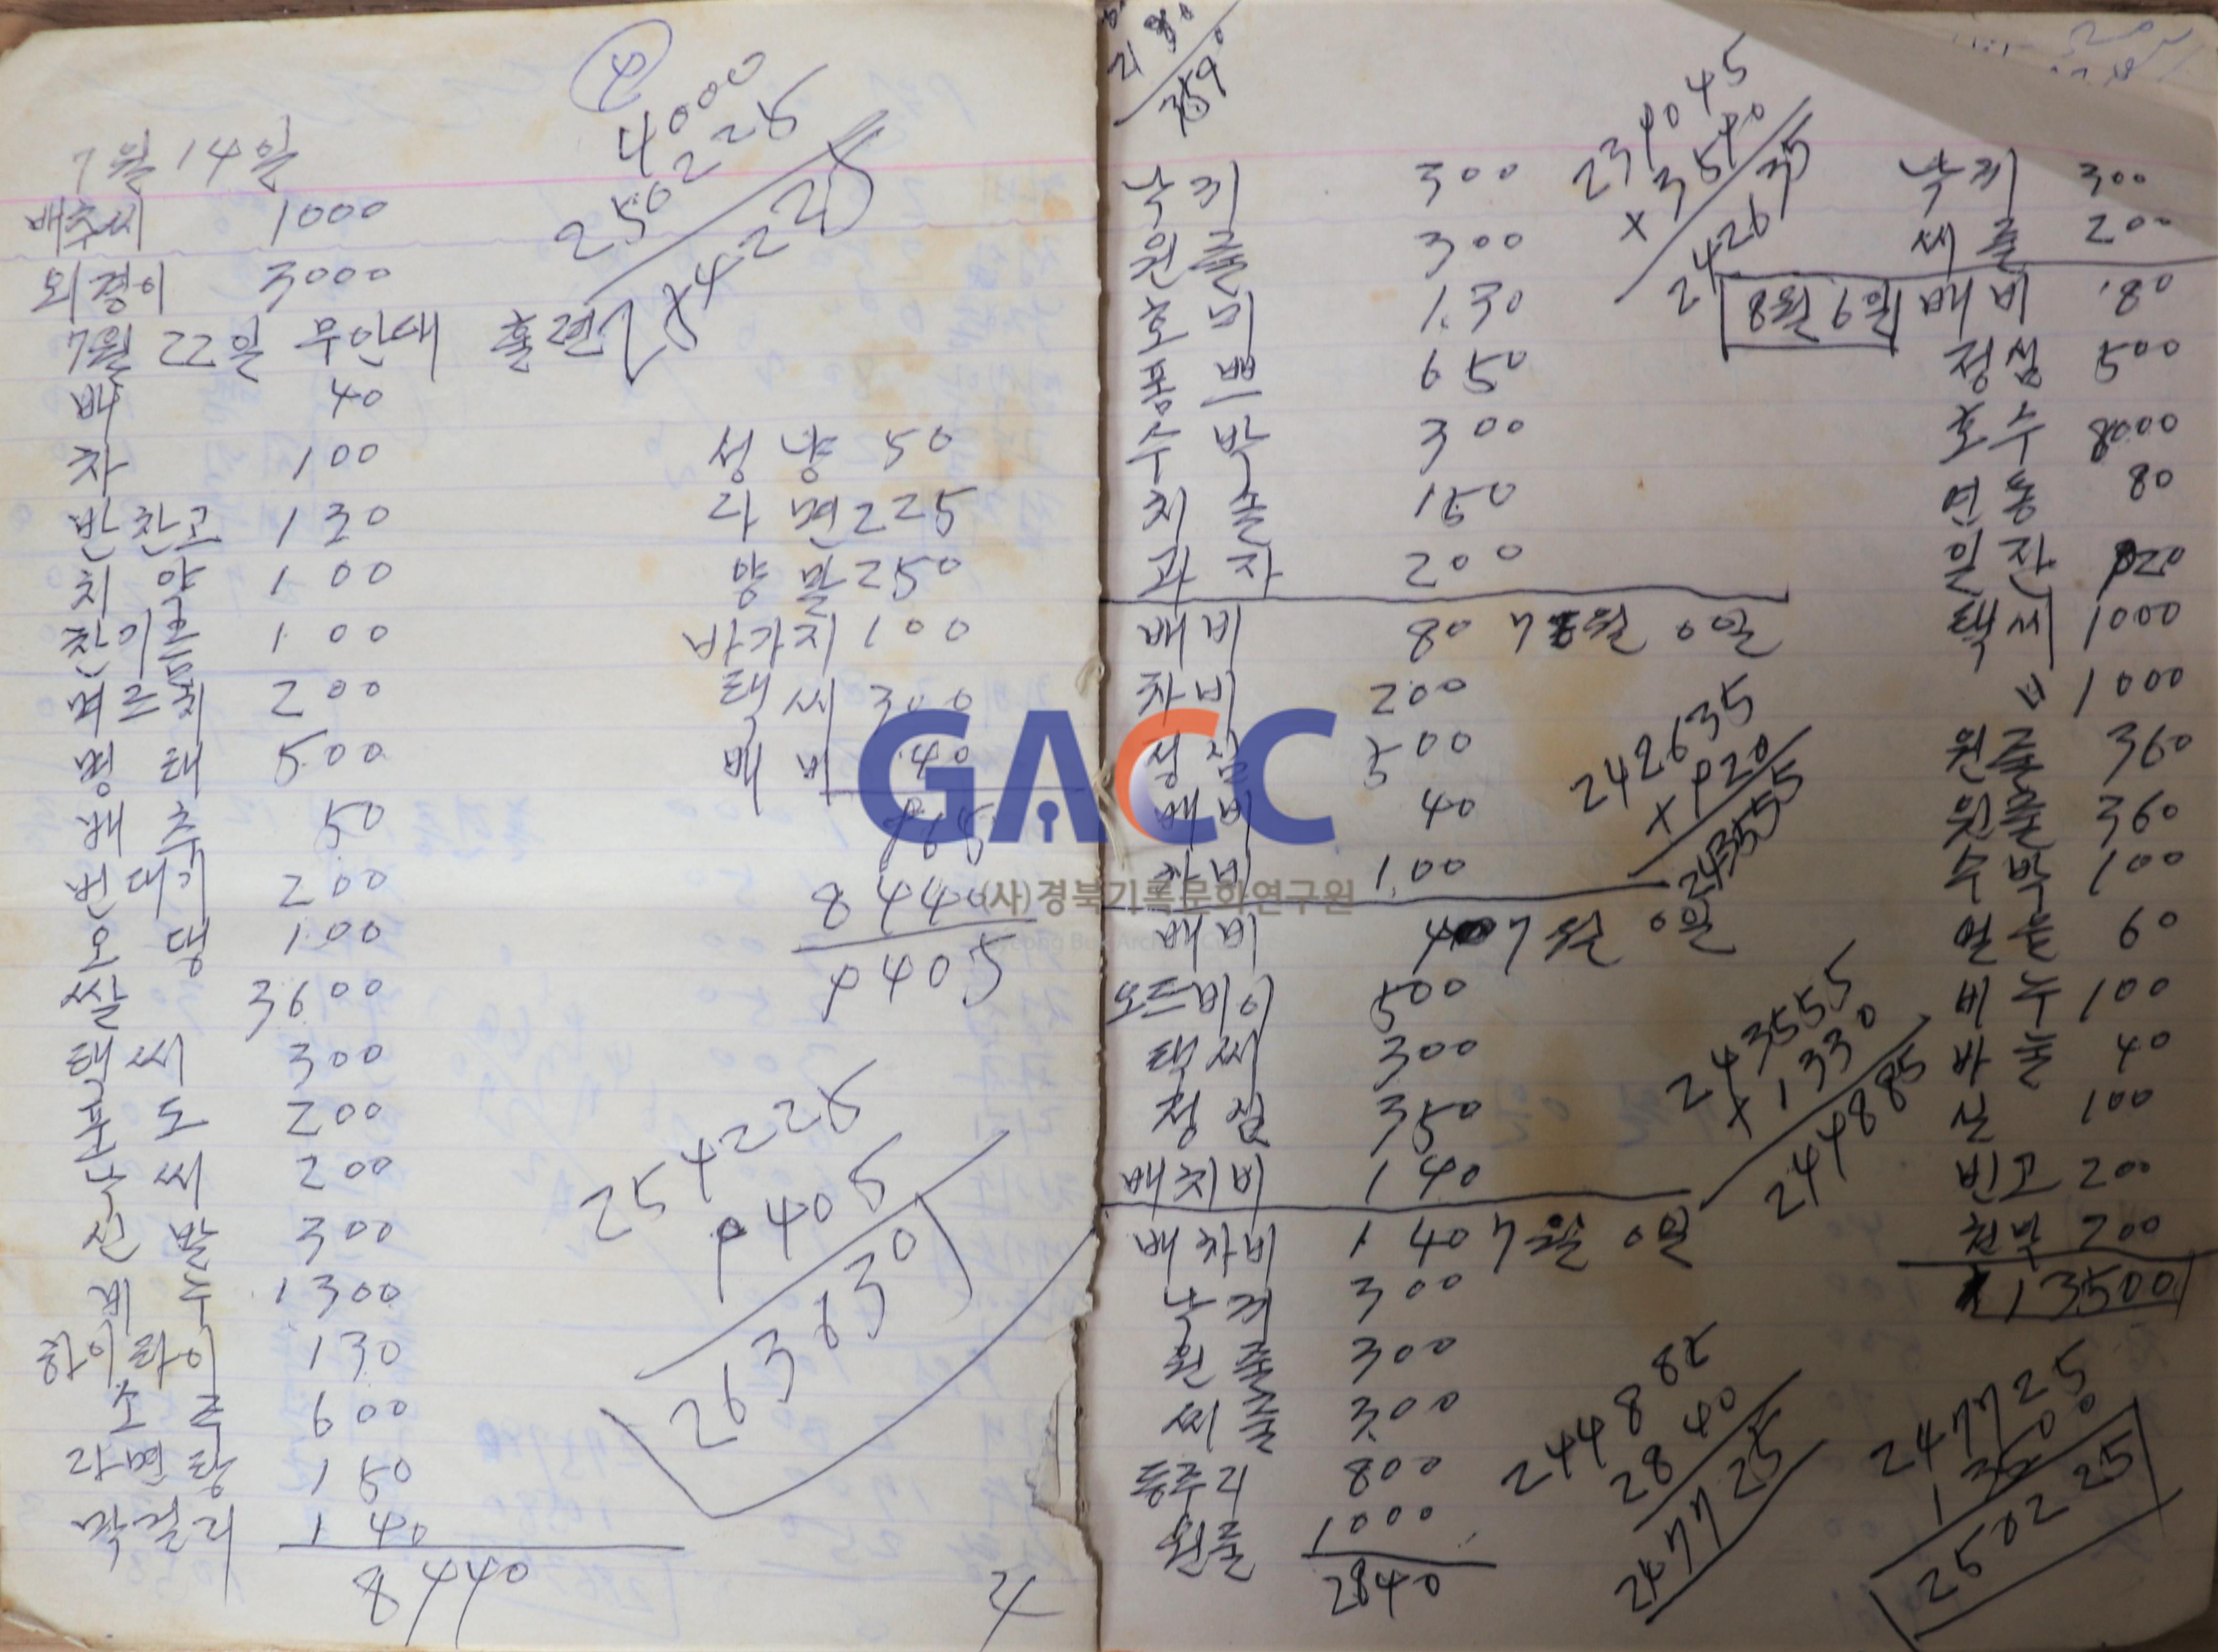 4
4000
250225
254225
7월 14일
배추씨 1000
외경이 3000
7월 22일 무안대 훌련
배 40
차 100
반찬고 130
치약 100
찬기름 100
며르치 200
명태 500
배추 50
번대기 200
오댕 100
쌀 3600
택씨 300
포도 200
낙씨 200
신발 300
비누 1300
하이타이 130
소주 600
라면땅 150
막걸리 140
8440
성냥 50
라면 225
양말 250
바가지 100
택씨 300
배비 40
965
8440
9405
254225
9405
263630
4
낙지 300
원줄 300
호미 130
폼쁘 650
수박 300
치솔 150
과자 200
배비 80 7월 0일
차비 200
정심 500
배비 40
차비 100
배비 40 7월 0일
오드바이 500
택씨 300
정심 350
배차비 140
배차비 140 7월 0일
낙지 300
원줄 300
씨줄 300
동구리 800
원줄 1000
2840
242635
× 920
243555
243555
× 1330
244885
244885
2840
247725
낙지 300
씨줄 200
8월 6일 배비 80
정심 500
호수 8000
연통 80
일잔
택씨 1000
〃 1000
원줄 360
원줄 360
수박 100
얼음 60
비누 100
바늘 40
실 100
빈고 200
천막 200
13500
247725
13500
250225
GACC
(사)경북기록문화연구원